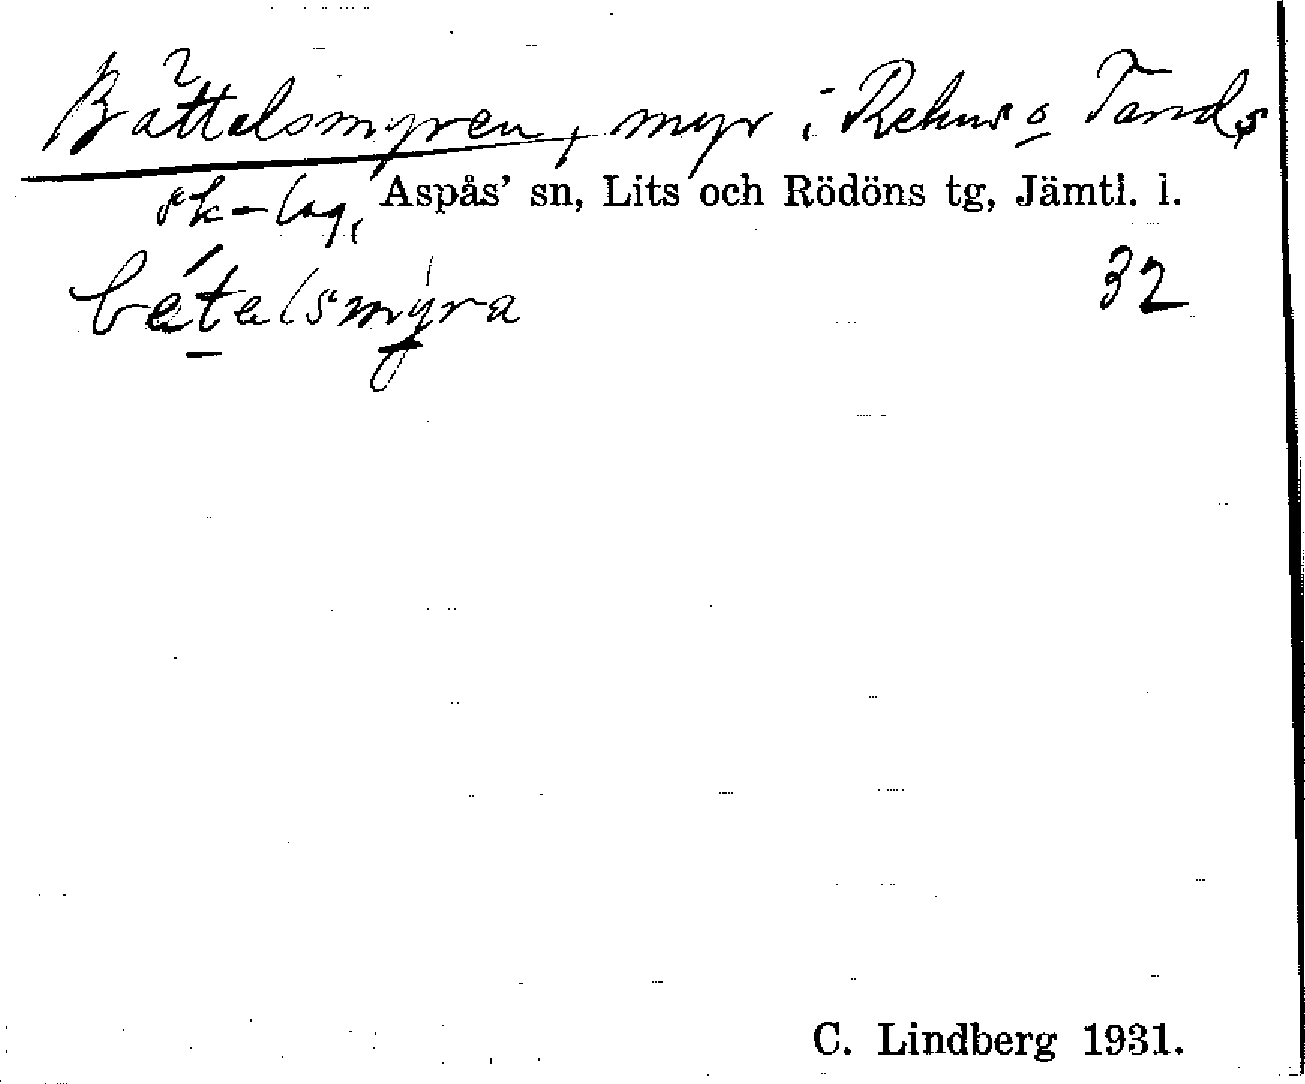 Båttalsmyren, myr i Rehns o Tands
sk-lag, Aspås' sn, Lits och Rödöns tg, Jämtl. l.
bátalsmýra 32
C. Lindberg 1931.